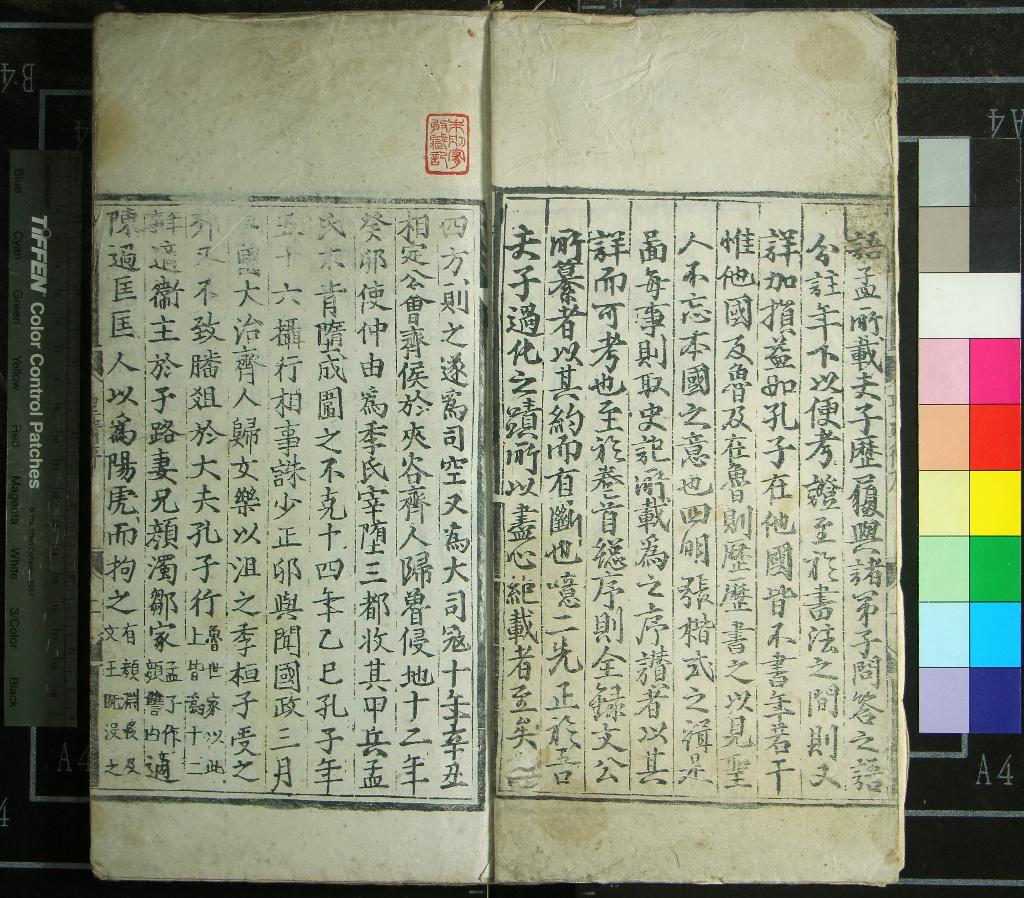 語孟所載夫子歷履與諸弟子問答之語
分註年下以便考證至於書法之間則又
詳加損益如孔子在他國皆不書年若干
惟他國反魯及在魯則歷歷書之以見聖
人不忘本國之意也四明張楷式之
啚每事則取史記所載爲之序讃者以其
詳而可考也至於卷首總序則全錄文公
所纂者以其約而有斷也噫二先正於吾
夫子過化之蹟所以盡心紀載者至矣
四方則之遂爲司空又爲大司寇十年辛丑
相定公會齊侯於夾谷齊人歸魯侵地十二年
癸卯使仲由爲季氏宰堕三都收其甲兵孟
氏不肯隳成圍之不克十四年乙巳孔子年
五十六攝行相事誅少正卯與聞國政三月
國大治齊人歸女樂以沮之季桓子受之
郊又不致膰俎於大夫孔子行魯世家以此上皆爲十二
事適衞主於子路妻兄顏濁鄒家孟子作顏讐由適
陳過匡匡人以爲陽虎而拘之有顏淵後及文王既没之
TIFFEN Color Control Patches
Blue Cyan Green Yellow Red Magenta White 3/Color Black
B4
A4
A4
A4